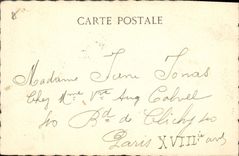 8
CARTE POSTALE
Madame Irène Jonas
Chez Mme Vve Aug Calvet
40 Bd. de Clichy 40
Paris XVIIIe ard